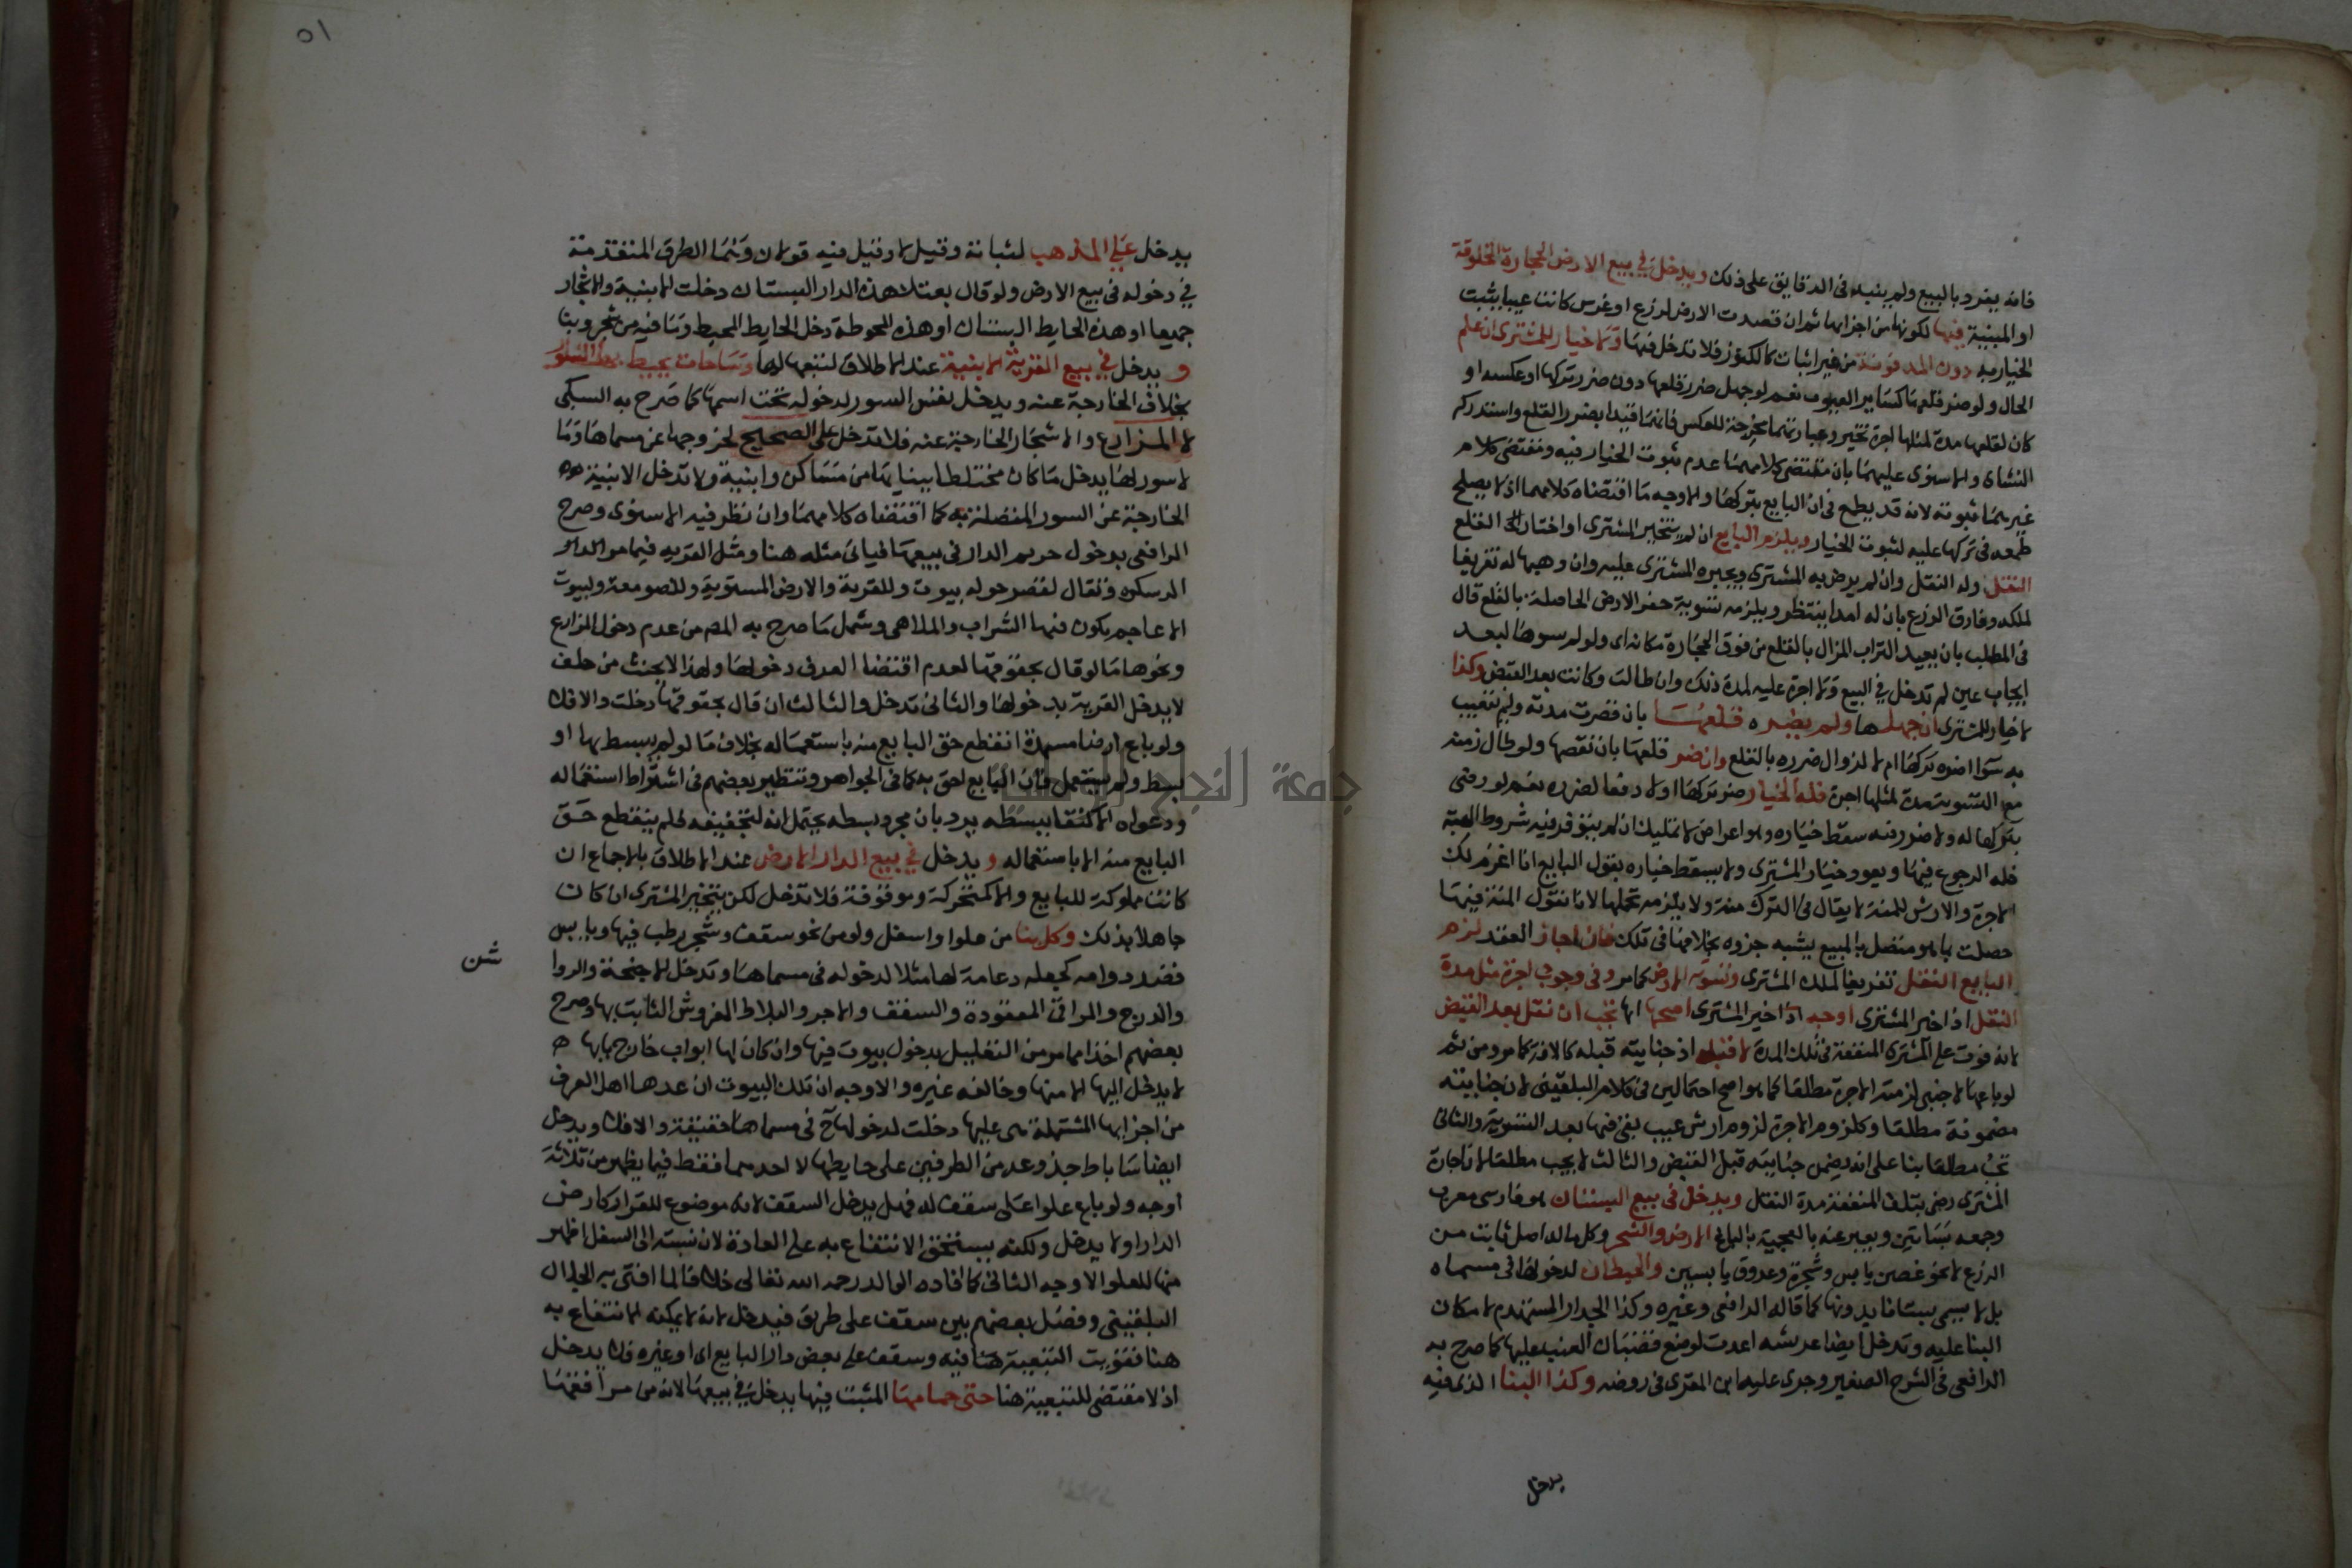 فانه يفرد بالبيع ولم يقيده فى الدقايق على ذلك ويدخل في بيع الارض الحجارة المخلوقة
او المبنية فيها لكونها من اجزايها ثم ان قصدت الارض لزرع او غرس كانت عيبا يثبت
الخيار به دون المدفونة من غير اثبات كالكنوز فلا تدخل فيها ولا خيار للمشترى ان علم
الحال ولو ضر قلعها كساير العيوب نعم لو جهل ضرر قلعها دون ضرر تركها او عكسه او
كان لقلعها مدة لمثلها اجرة تخير وعبارتهما مخرجة للعكس فانهما قيدا بضرر القلع واستدركه
النشاى والاسنوى عليهما بان مقتضى كلامهما عدم ثبوت الخيار فيه ومقتضى كلام
غيرهما ثبوته لانه قد يطمع فى ان البايع يتركها والاوجه ما اقتضاه كلامهما اذ لا يصلح
طمعه فى تركها علية لثبوت الخيار ويلزم البايع ان لم يتخير المشترى او اختار القلع
النقل وله النقل وان لم يرض به المشترى ويجبره المشترى عليه وان وهبها له تفريغا
لملكه وفارق الزرع بان له امدا ينتظر ويلزمه تسوية حفر الارض الحاصلة بالقلع قال
فى المطلب بان يعيد التراب المزال بالقلع من فوق الحجارة مكانه اى ولو لم سوها لبعد
ايجاب عين لم تدخل في البيع ولا اجرة عليه لمدة ذلك وان طالت وكانت بعد القبض وكذا
لا خيار للمشترى ان جهلها ولم يضره قلعها بان قصرت مدته ولم تتعيب
به سوا اضره تركها ام لا لزوال ضرره بالقلع وان ضر قلعها بان نقصها ولو طال زمنه
مع التسوية مدة لمثلها اجرة فله الخيار ضر تركها اولا دفعا لضرره نعم لو رضى
بتركها له ولا ضرر فيه سقط خياره وهو اعراض لا تمليك ان لم يتوفر فيه شروط الهبة
فله الرجوع فيها ويعود خيار المشترى ولا يسقط خياره بقول البايع انا اغرم لك
الاجرة والارش للمنة لا يقال فى الترك منة ولا يلزمه تحملها لانا نقول المنة فيها
حصلت بما هو متصل بالمبيع يشبه جزوه بخلافها فى تلك فان اجاز العقد لزم
البايع النقل تفريغا لملك المشترى وتسوية الارض كما مر وفى وجوب اجرة مثل مدة
النقل اذا خير المشترى اوجه اذا خير المشترى اصحها انها تجب ان نقل بعد القبض
لانه فوت على المشترى المنفعة فى تلك المدة لا قبله اذ جنايته قبله كالافة كما مر ومن ثم
لو باعها لاجنبى لزمته الاجرة مطلقا كما هو اصح احتمالين فى كلام البلقينى لان جنايته
مضمونة مطلقا وكلزوم الاجرة لزوم ارش عيب بقى فيها بعد التسوية والثانى
تجب مطلقا بنا على انه يضمن جنايته قبل القبض والثالث لا يجب مطلقا لان اجازة
المشترى رضى بتلف المنفعة مدة النقل ويدخل فى بيع البستان هو فارسى معرب
وجمعه بساتين ويعبر عنه بالعجمية بالباغ الارض والشجر وكل ما له اصل ثابت من
الزرع لا نحو غصن يابس وشجرة وعروق يابسين والحيطان لدخولها فى مسماه
بل لا يسمى بستانا بدونها كما قاله الرافعى وغيره وكذا الجدار المستهدم لامكان
البنا عليه وتدخل ايضا عريشه اعدت لوضع قضبان العنب عليها كما صرح به
الرافعى فى الشرح الصغير وجرى عليه ابن المقرى فى روضه وكذا البنا الذى فيه
يدخل
٥١
يدخل على المذهب لثباته وقيل لا وقيل فيه قولان وهما الطرق المتقدمة
في دخوله فى بيع الارض ولو قال بعتك هذه الدار البستان دخلت الابنية والاشجار
جميعا او هذه الحايط البستان او هذه المحوطة دخل الحايط المحيط وما فيه من شجر وبنا
و يدخل في بيع القرية الابنية عند الاطلاق لتبعها لها وساحات يحيط بها السور
بخلاف الخارجة عنه ويدخل نفس السور لدخوله تحت اسمها كما صرح به السبكى
لا المزارع والاشجار الخارجة عنه فلا تدخل على الصحيح لخروجها عن مسماها وما
لا سور لها يدخل ما كان مختلطا ببنايها من مساكن وابنية ولا تدخل الابنية
الخارجة عن السور المتصلة به كما اقتضاه كلامهما وان نظر فيه الاسنوى وصرح
الرافعى بدخول حريم الدار فى بيعها فياتى مثله هنا ومثل القريه فيما مر الدار
الدسكره وتقال لقصر حوله بيوت وللقرية والارض المستوية وللصومعة ولبيوت
الاعاجم يكون فيها الشراب والملاهى وشمل ما صرح به المص من عدم دخول المزارع
ونحوها ما لو قال بحقوقها لعدم اقتضا العرف دخولها ولهذا لا يحنث من حلف
لا يدخل القرية بدخولها والثانى تدخل والثالث ان قال بحقوقها دخلت والا فلا
ولو باع ارضا مسمدة انقطع حق البايع منه باستعماله بخلاف ما لو لم يبسط بها او
بسط ولم يستعمل فان البايع احق به كما فى الجواهر وتنظير بعضهم فى اشتراط استعماله
ودعواه الاكتفا ببسطه يرد بان مجرد بسطه يحتمل انه لتجفيفه فلم ينقطع حق
البايع منه الا باستعماله و يدخل في بيع الدار الارض عند الاطلاق بالاجماع ان
كانت مملوكة للبايع والا كمحتكرة وموقوفة فلا تدخل لكن يتخير المشترى ان كان
جاهلا بذلك وكل بنا من علوا واسفل ولو من نحو سقف وشجر رطب فيها ويابس
قصد دوامه كجعله دعامة لها مثلا لدخوله فى مسماها وتدخل الاجنحة والروا
شن
والدرج والمراقى المعقودة والسقف والاجر والبلاط المفروش الثابت بها وصرح
بعضهم اخذا مما مر من التعليل بدخول بيوت فيها وان كان لها ابواب خارج بابها
لا يدخل اليها الا منها وخالفه غيره والاوجه ان تلك البيوت ان عدها اهل العرف
من اجزايها المشتملة هى عليها دخلت لدخولها ح فى مسماها حقيقة والا فلا ويدخل
ايضا ساباط جذوعه من الطرفين على حايطها لا احدهما فقط فيما يظهر من ثلاثة
اوجه ولو باع علوا على سقف له فهل يدخل السقف لانه موضوع للقرار كارض
الدار اولا يدخل ولكنه يستحق الانتفاع به على العادة لان نسبته الى السفل اظهر
منها للعلو الاوجه الثانى كما افاده الوالد رحمه الله تعالى خلافا لما افتى به الجلال
البلقينى وفصل بعضهم بين سقف على طريق فيدخل لانه لا يمكنه الانتفاع به
هنا فقويت التبعية هنا فيه وسقف على بعض دار البايع اى او غيره فلا يدخل
اذ لا مقتضى للتبعية هنا حتى حمامها المثبت فيها يدخل في بيعها لانه من مرافقها
جامعة النجاح الوطنية